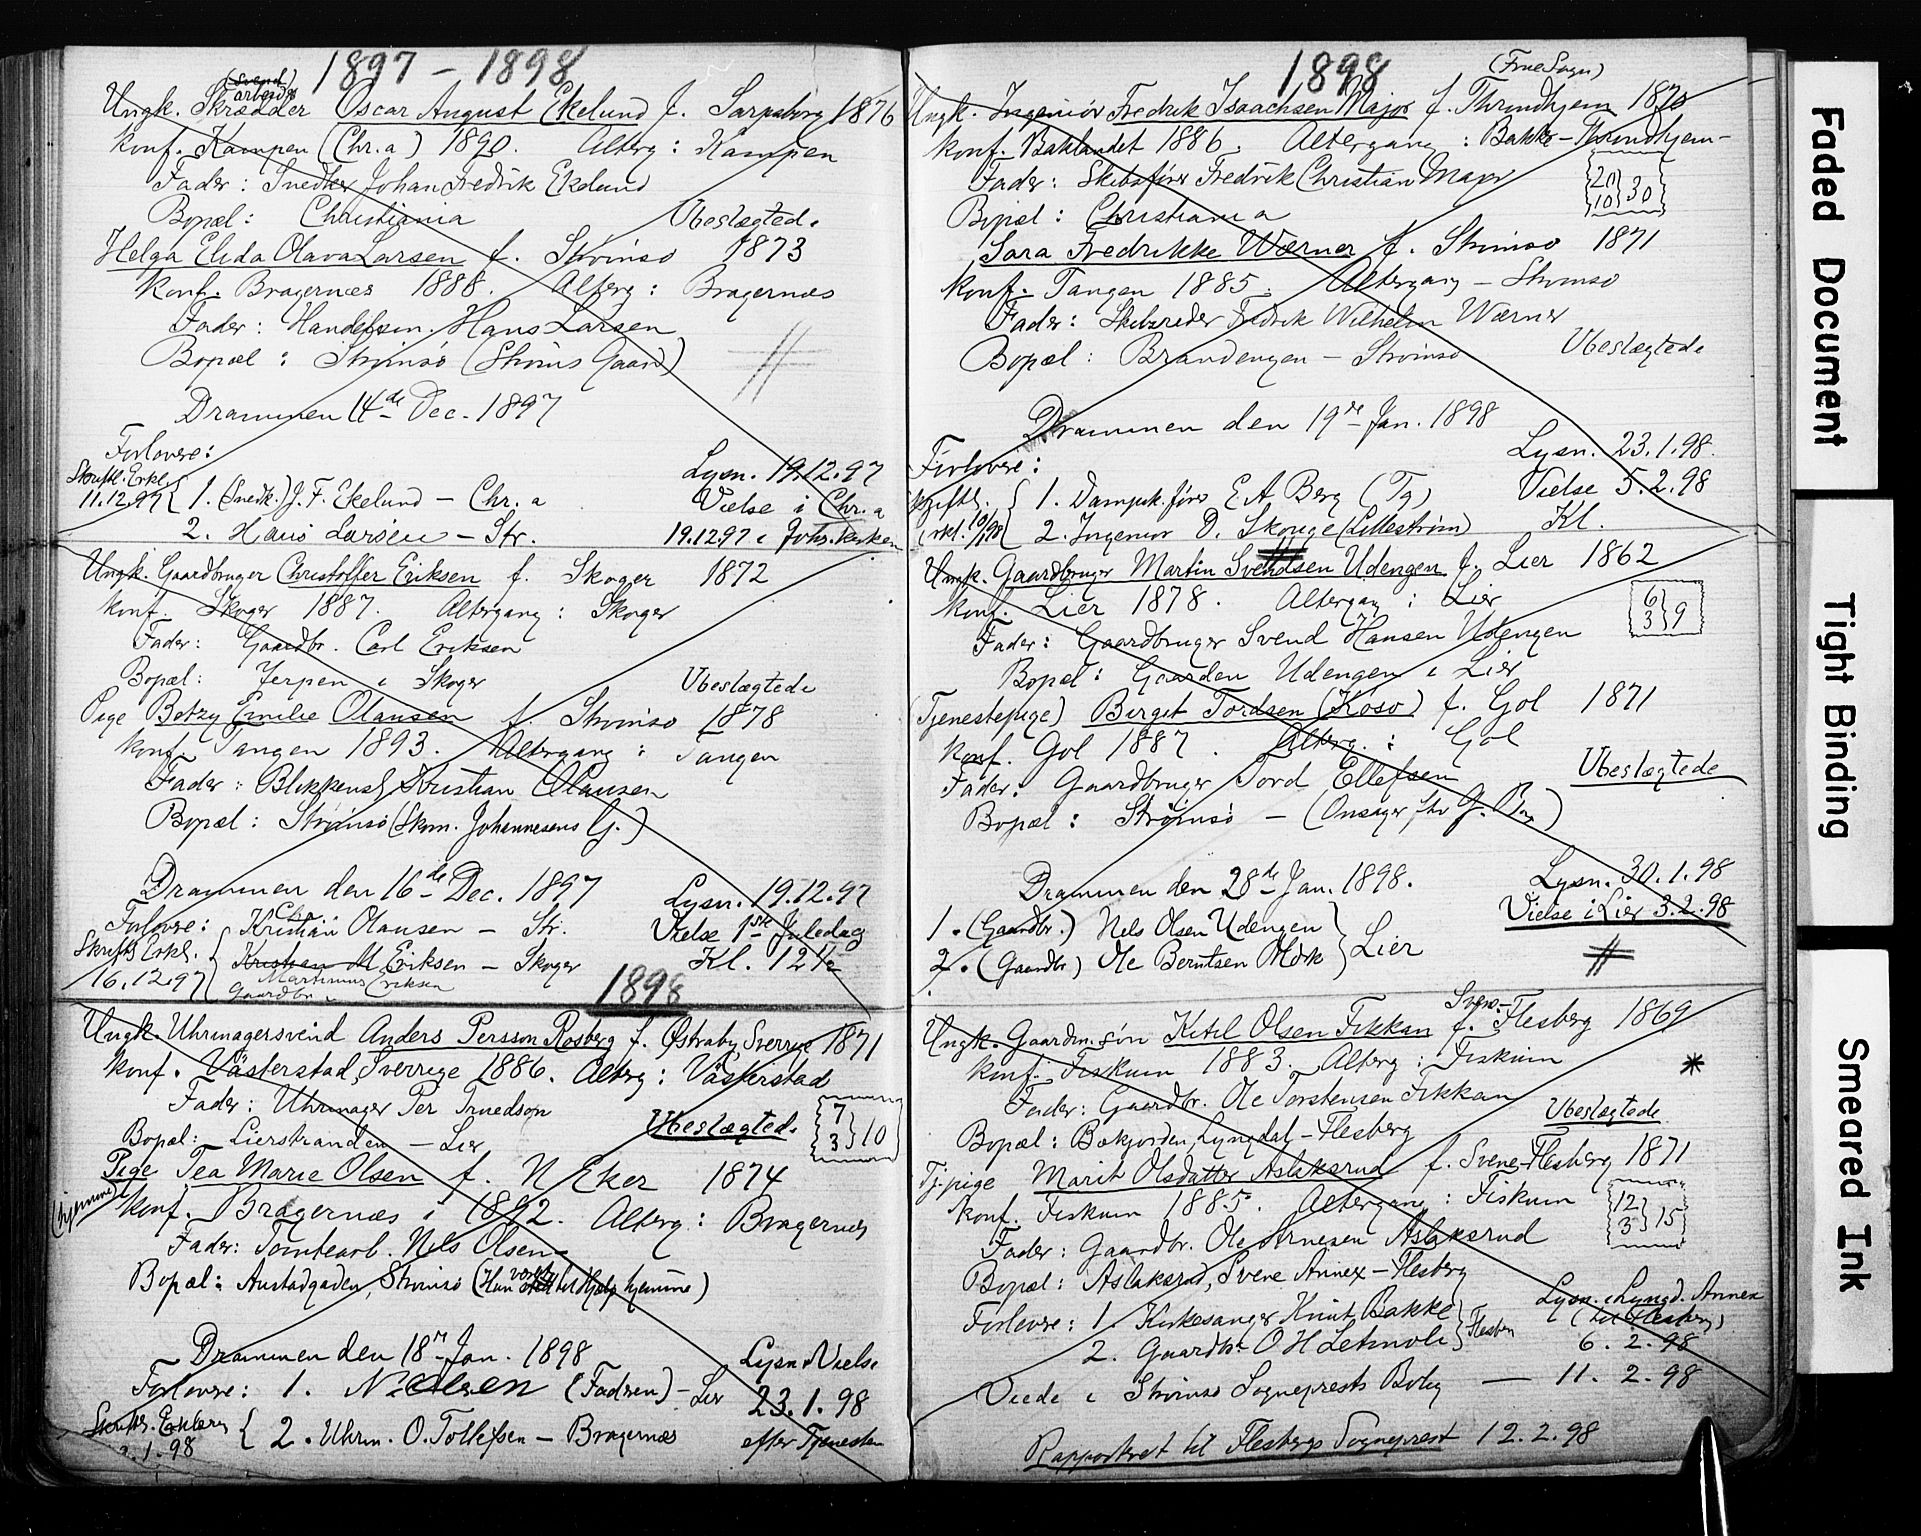 1897 - 1898
(Svend)
arbeider
Ungk. Skrædder Oscar August Ekelund f. Sarpsborg 1876
Konf. Kampen (Chr.a) 1890. Alterg: Kampen
Fader: Snedker Johan Fredrik Ekelund
Bopæl: Christiania Ubeslægtede.
Helga Elida Olava Larsen f. Strömsö 1873
Konf. Bragernæs 1888. Alterg: Bragernæs
Fader: Handelsm. Hans Larsen
Bopæl: Strömsö (Ströms Gaard)
Drammen 14de Dec. 1897
Forlovere:
Skriftl. Erkl. 11.12.97 { 1. (Snedk.) J. F. Ekelund - Chr.a
2. Hans Larsen - Str.
Lysn. 19.12.97
Vielse i Chr.a
19.12.97 i Johs. kirken
Ungk. Gaardbruger Christoffer Eriksen f. Skoger 1872
Konf. Skoger 1887. Altergang: Skoger
Fader: Gaardbr. Carl Eriksen
Bopæl: Jerpen i Skoger Ubeslægtede
Pige Betzy Emilie Olausen f. Strömsö 1878
Konf. Tangen 1893. Altergang: Tangen
Fader: Blikkensl. Kristian Olausen
Bopæl: Strömsö (Skom. Johannesens G.)
Drammen den 16de Dec. 1897 Lysn. 19.12.97
Forlovere: Kristian Olausen - Str. Vielse 1ste Juledag
Skriftl. Erkl. { Kristian M. Eriksen - Skoger Kl. 12 ½
16.12.97 Martinius Eriksen
Gaardbr.
1898
Ungk. Uhrmagersvend Anders Persson Rosberg f. Østraby, Sverrige 1871
Konf. Västerstad, Sverrige 1886. Alterg: Västerstad
Fader: Uhrmager Per Truedson
Ubeslægtede. 7 3 } 10
Bopæl: Lierstranden - Lier
Pige Tea Marie Olsen f. N Eker 1874
(hjemme) Konf. Bragernæs i 1892. Alterg: Bragernæs
Fader: Tomtearb. Nils Olsen
Bopæl: Austadgaden, Strömsö (Hun været til Hjælp hjemme)
Drammen den 18de Jan. 1898 Lysn. Vielse
Forlovere: 1. N. Olsen (Faderen) - Lier 23.1.98
Skriftl. Erklæring { 2. Uhrm. O. Tollefsen - Bragernæs efter Tjenesten
.1.98
1898
(Frue Sogn)
Ungk. Ingeniör Fredrik Isaachsen Major f. Throndhjem 1870
Konf. Baklandet 1886. Altergang: Bakke - Throndhjem -
Fader: Skibsförer Fredrik Christian Major
20 10 } 30
Bopæl: Christiania
Sara Fredrikke Wærner f. Strömsö 1871
Konf. Tangen 1885. Altergang - Strömsö
Fader: Skibsreder Fredrik Wilhelm Wærner
Bopæl: Brandengen - Strömsö Ubeslægtede
Drammen den 19de Jan. 1898
Lysn. 23.1.98.
Forlovere:
Skriftl. { 1. Dampsk.förer E. A. Berg (Tg) Vielse 5.2.98
Erkl. 19/1 98 2. Ingeniör D. Skouge (Lilleström) Kl.
Ungk. Gaardbruger Martin Svendsen Udengen f. Lier 1862
Konf. Lier 1878. Altergang: Lier
6 3 } 9
Fader: Gaardbruger Svend Hansen Udengen
Bopæl: Gaarden Udengen i Lier
(Tjenestepige) Birgit Tordsen (Kosö) f. Gol 1871
Konf. Gol 1887. Alterg.: Gol
Fader: Gaardbruger Tord Ellefsen Ubeslægtede
Bopæl: Strömsö - (Onsager
Drammen den 28de Jan. 1898. Lysn. 30.1.98
1. (Gaardbr.) Nels Olsen Udengen } Lier Vielse i Lier 3.2.98
2. (Gaardbr) Ole Berntsen Mörk
Ungk. Gaardm.sön Ketil Olsen Fikkan f. Svene-Flesberg 1869
Konf. Fiskum 1883. Alterg: Fiskum
Fader: Gaardbr. Ole Torstensen Fikkan
Ubeslægtede
Bopæl: Bækjorden, Lyngdal - Flesberg
Tj.pige Marit Olsdatter Aslaksrud f. Svene-Flesberg 1871
Konf. Fiskum 1885. Altergang: Fiskum
12 3 } 15
Fader: Gaardbr. Ole Arnesen Aslaksrud
Bopæl: Aslaksrud, Svene Annex - Flesberg
Forlovere: 1. Kirkesanger Knut Bakke } Flesberg Lysn. i Lyngd. Annex
2. Gaardbr. O H Letmoli (til Flesberg)
6.2.98
Viede i Strömsö Sogneprests Bolig - 11.2.98
Rapporteret til Flesbergs Sogneprest 12.2.98
Faded Document
Tight Binding
Smeared Ink